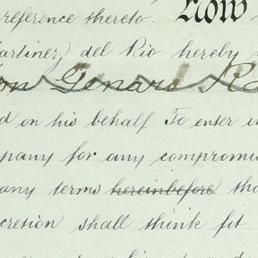 reference thereto. Now
Martinez) del Rio hereby
on Genaro Ra
d on his behalf To enter in
pany for any compromis
any terms hereinbefore tha
cretion shall think fit